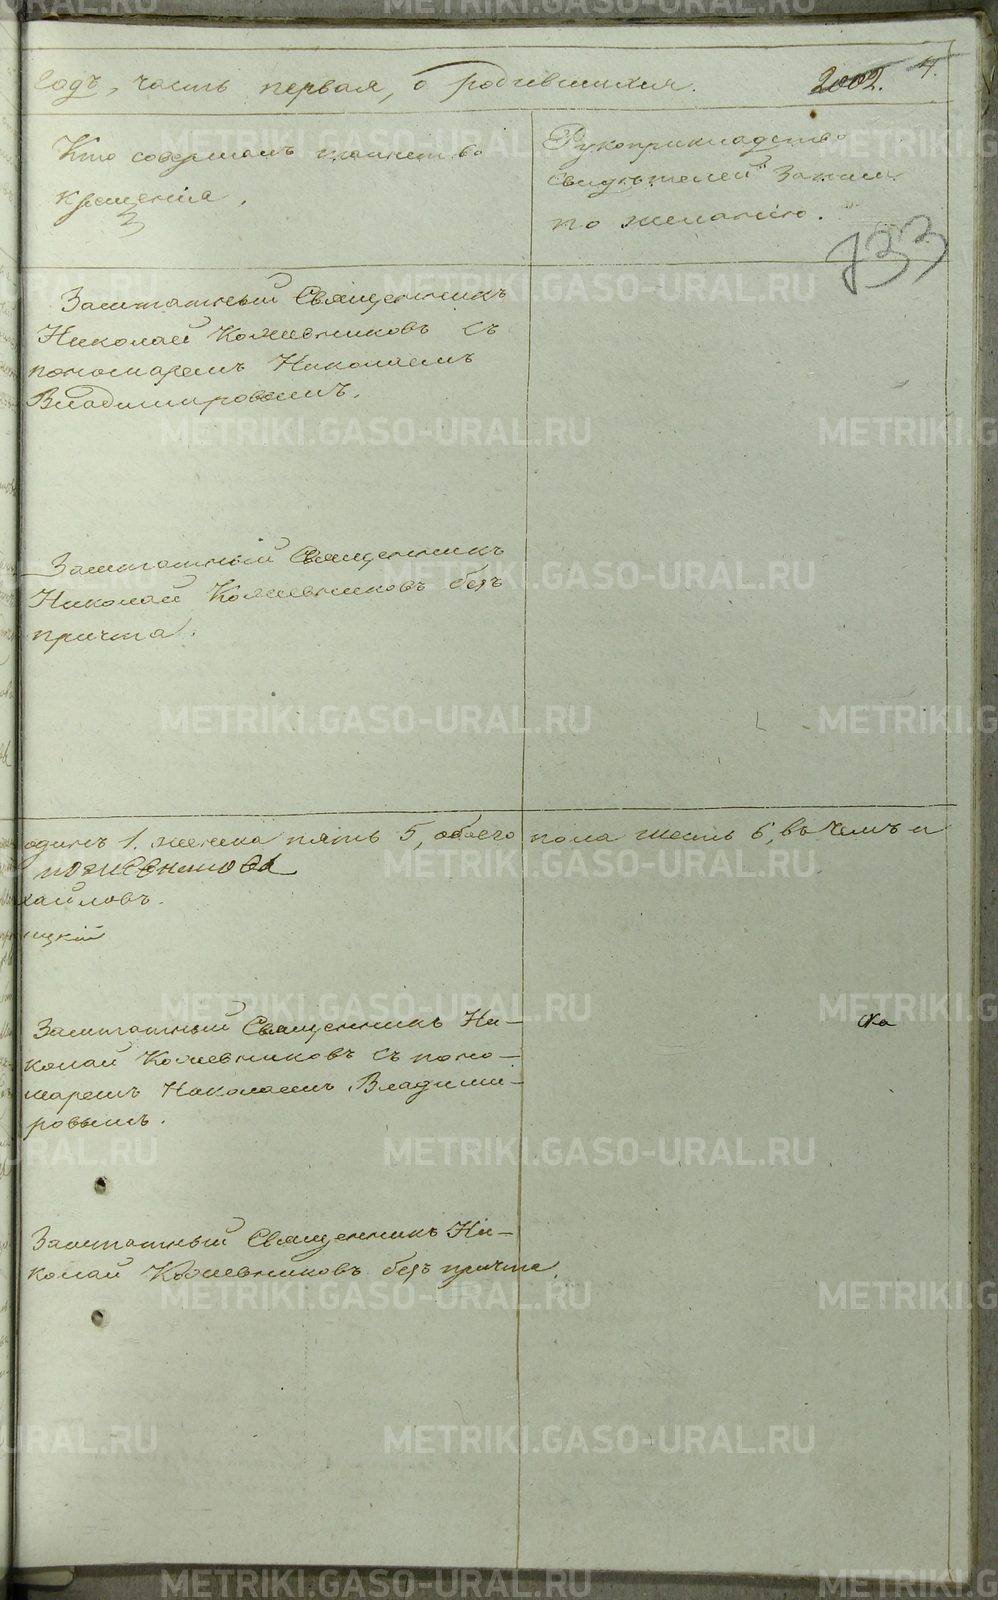 годъ, часть первая, о родившихся. 2002. 4.
Кто совершалъ таинство
крещенія,
3
Рукоприкладство
свидѣтелей записи
по желанію.
133
Заштатный Священникъ
Николай Кожевниковъ съ
пономаремъ Николаемъ
Владимировымъ.
Заштатный Священникъ
Николай Кожевниковъ безъ
причта.
одинъ 1. женска пять 5, обоего пола шесть 6, въ чемъ и
хайловъ.
ицкій
Заштатный Священникъ Ни-
колай Кожевниковъ съ поно-
маремъ Николаемъ Владими-
ровымъ.
Заштатный Священникъ Ни-
колай Кожевниковъ безъ причта.
METRIKI.GASO-URAL.RU